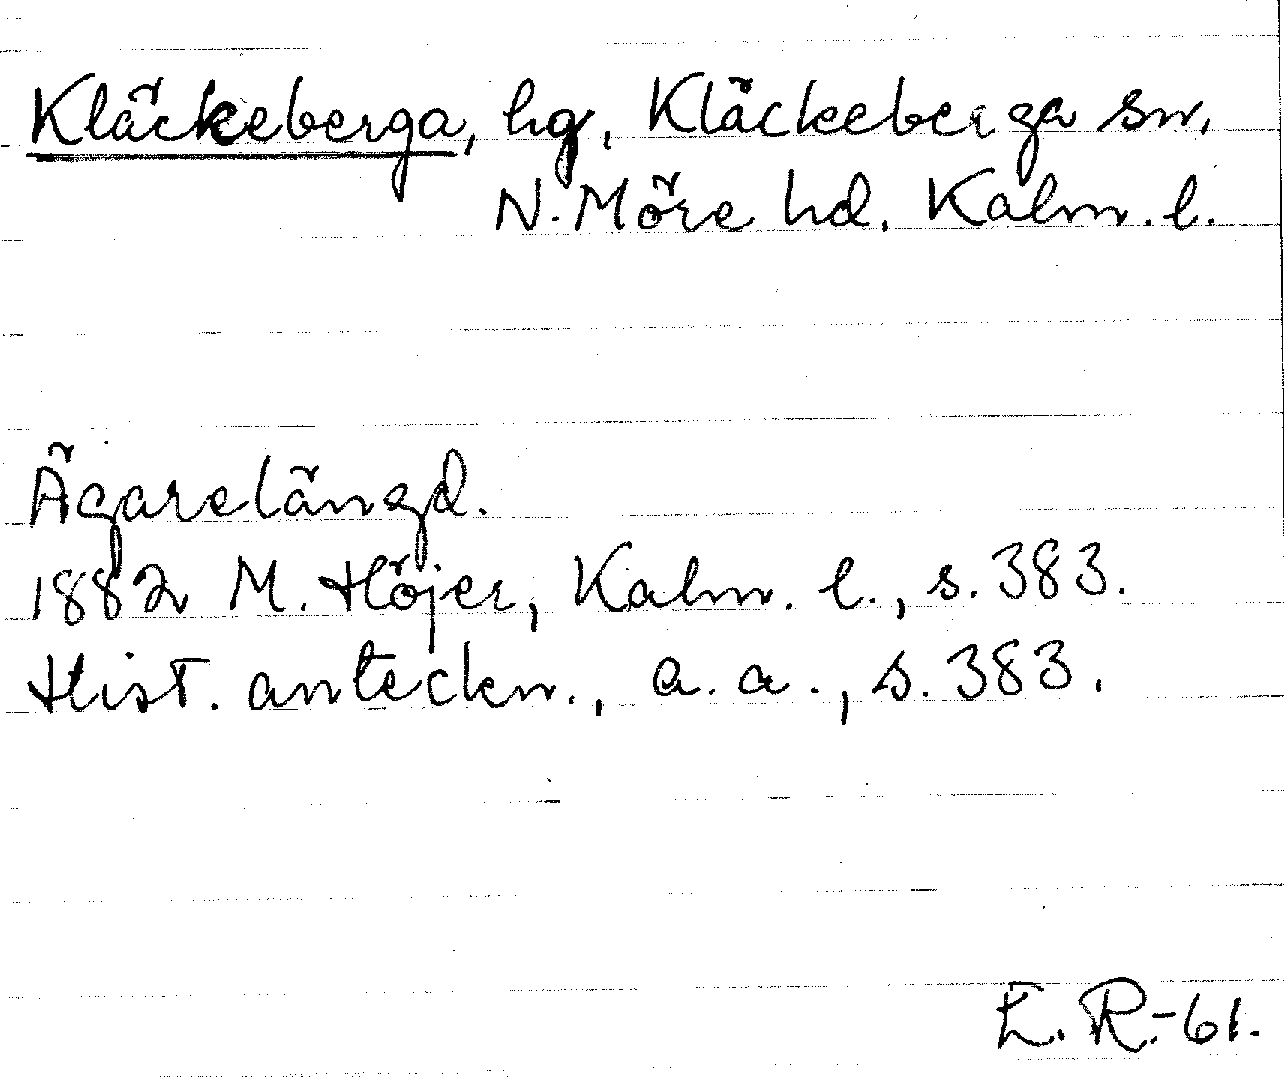 Kläckeberga, hg, Kläckeberga sn,
N. Möre hd. Kalm. l.
Ägarelängd.
1882 M. Höjer, Kalm. l., s. 383.
Hist. anteckn., a. a., s. 383.
E. R.-61.